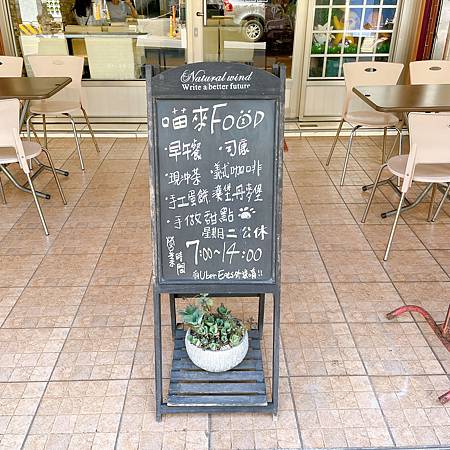 Natural wind
Write a better future
喵來FOOD
·早午餐 ·司康
·現沖茶 ·義式咖啡
·手工蛋餅.漢堡.丹麥堡
·手做甜點
星期二公休
營業時間
7:00~14:00
有Uber Eats外送唷!!